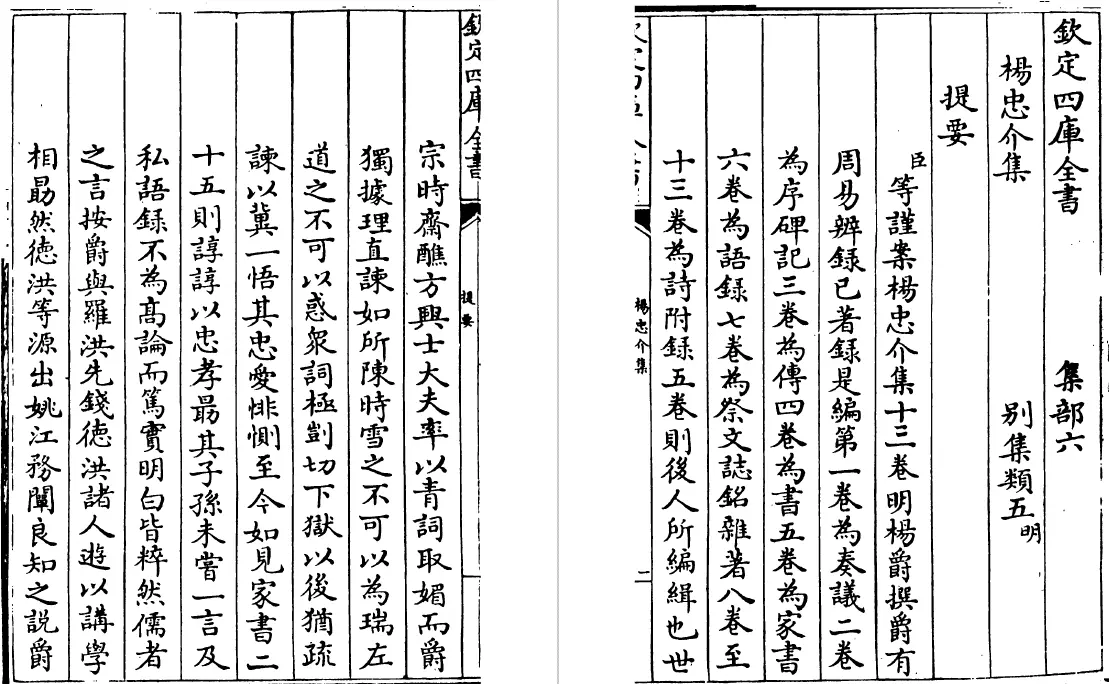 欽定四庫全書 集部六
楊忠介集 别集類五明
提要
臣等謹案楊忠介集十三卷明楊爵撰爵有
周易辨録已著録是編第一卷為奏議二卷
為序碑記三卷為傳四卷為書五卷為家書
六卷為語録七卷為祭文誌銘雜著八卷至
十三卷為詩附録五卷則後人所編緝也世
楊忠介集
二
欽定四庫全書
提要
宗時齋醮方興士大夫率以青詞取媚而爵
獨據理直諫如所陳時雪之不可以為瑞左
道之不可以惑衆詞極剴切下獄以後猶疏
諫以冀一悟其忠愛悱惻至今如見家書二
十五則諄諄以忠孝朂其子孫未嘗一言及
私語録不為髙論而篤實明白皆粹然儒者
之言按爵與羅洪先錢徳洪諸人遊以講學
相勗然徳洪等源出姚江務闡良知之説爵